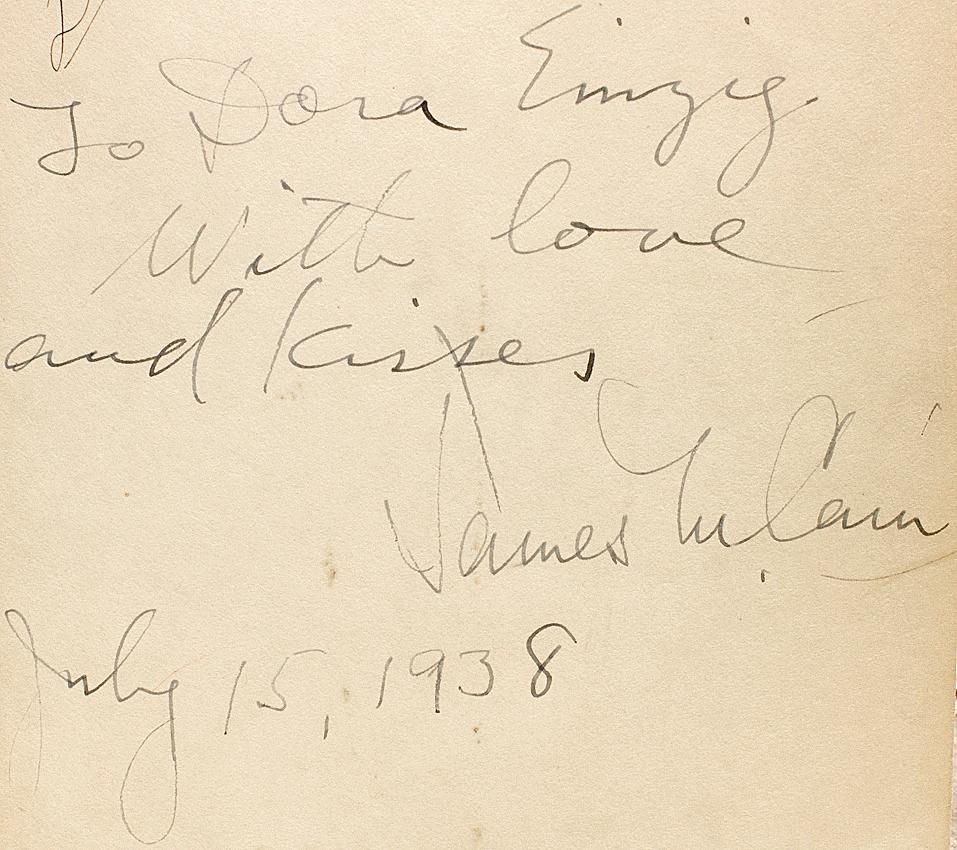 To Dora Einzig
With love
and kisses
James M. Cain
July 15, 1938